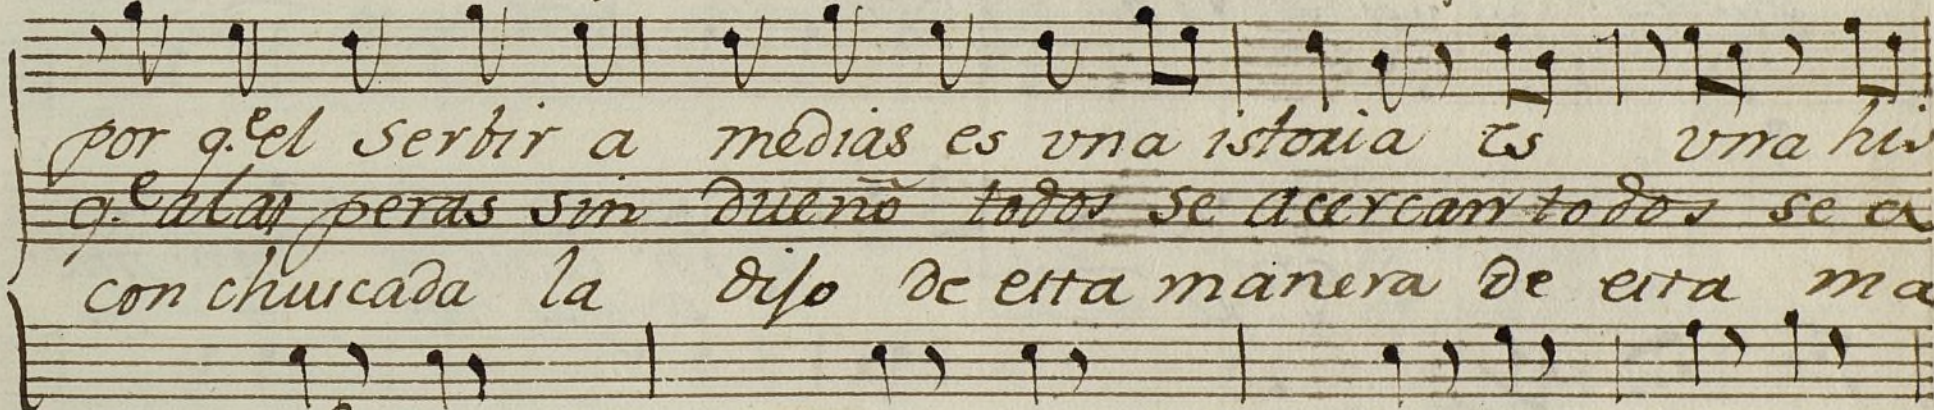 por q.e el serbir a medias es vna istoria es vna his
q.e a las peras sin dueño todos se acercan todos se a
con chuscada la diso de esta manera de esta ma